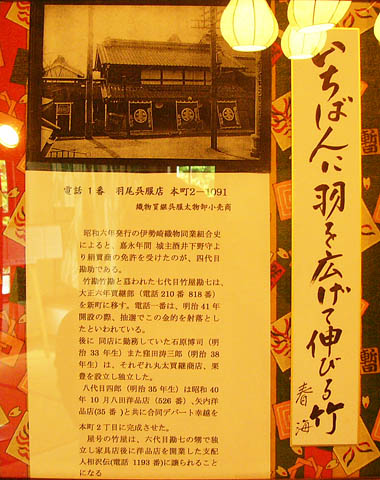 いちばんに羽を広げて伸びる竹
春海
電話 1番 羽尾呉服店 本町2－1091
織物買継呉服太物卸小売商
昭和六年発行の伊勢崎織物同業組合史
によると、嘉永年間 城主酒井下野守よ
り絹買商の免許を受けたのが、四代目
勘助である。
竹勘竹勘と謳われた七代目竹屋勘七は、
大正六年買継部（電話210番 818番）
を新町に移す。電話一番は、明治41年
開設の際、抽選でこの金的を射落とし
たといわれている。
後に 同店に勤務していた石原博司（明
治33年生）また窪田涛三郎（明治38
年生）は、それぞれ丸太買継商店、栗
豊を設立し独立した。
八代目四郎（明治35年生）は昭和40
年10月八田洋品店（526番）、矢内洋
品店(35番)と共に合同デパート幸越を
本町2丁目に完成させた。
屋号の竹屋は、六代目勘七の甥で独
立し家具店後に洋品店を開業した支配
人相沢伝(電話 1193番)に譲られること
になる